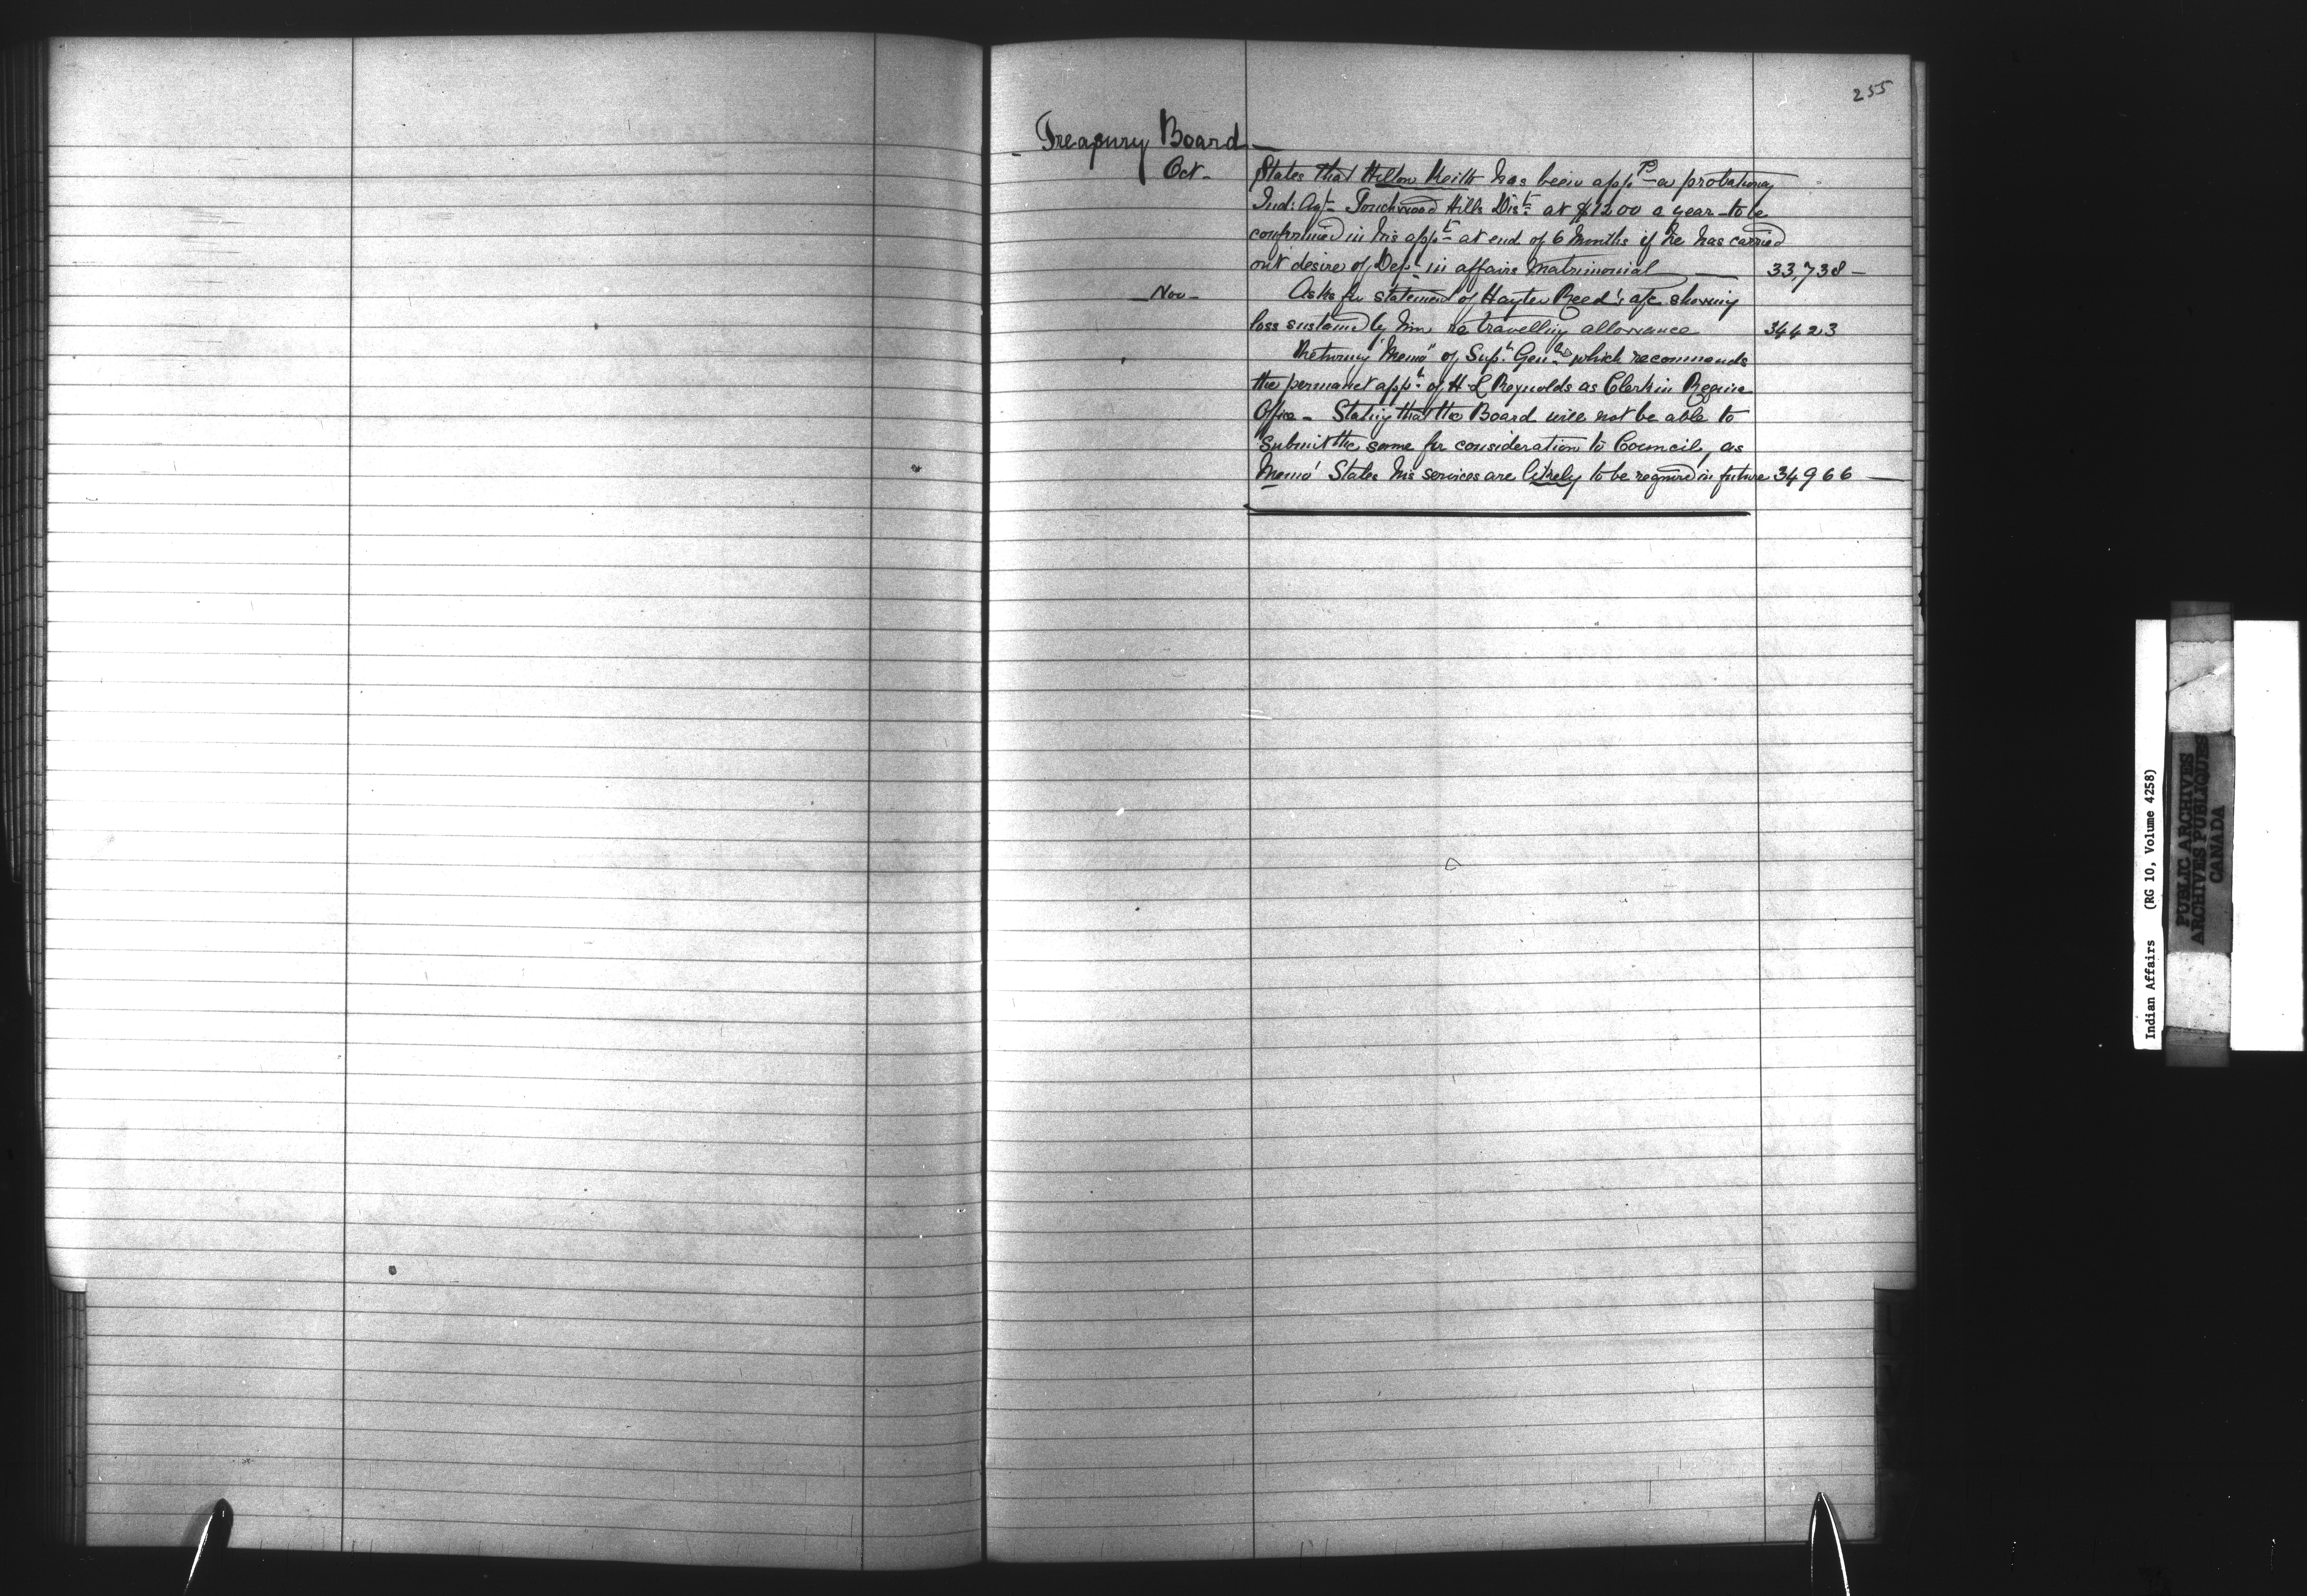 255
Treasury Board —
Oct - States that Hilton Keith has been app^d a probationary
Ind: Agt Touchwood Hills Dist. at $1200 a year - to be
confirmed in his appt at end of 6 Months if he has carried
out desire of Dept in affairs Matrimonial — 33,738 -
- Nov - Asks for statement of Hayter Reed's a/c showing
loss sustained by him re travelling allowance 34423
Returning "Memo" of Supt Genl which recommends
the permanet appt of H L Reynolds as Clerk in Regina
Office - Stating that the Board will not be able to
Submit the same for consideration to Council, as
Memo' States his services are likely to be required in future 34966 —
Indian Affairs (RG 10, Volume 4258)
PUBLIC ARCHIVES
ARCHIVES PUBLIQUES
CANADA